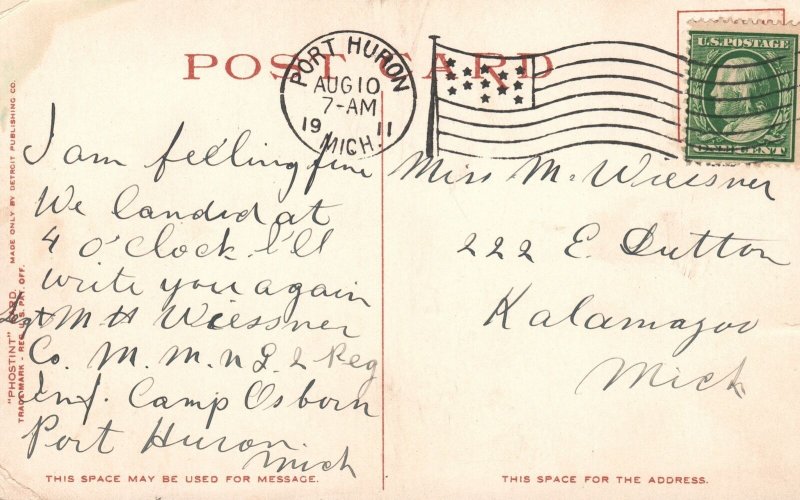 POST CARD
PORT HURON
AUG 10
7-AM
19 11
MICH.
U.S. POSTAGE
ONE CENT
I am feeling fine
We landid at
4 o'clock. I'll
write you again
Sgt M H Wiessner
Co. M. M. N G. 2 Reg
Inf. Camp Osborn
Port Huron.
Mich
Miss M. Wiessner
222 E. Dutton
Kalamazoo
Mich
"PHOSTINT" CARD. MADE ONLY BY DETROIT PUBLISHING CO.
TRADE MARK - REG. U.S. PAT. OFF.
THIS SPACE MAY BE USED FOR MESSAGE.
THIS SPACE FOR THE ADDRESS.